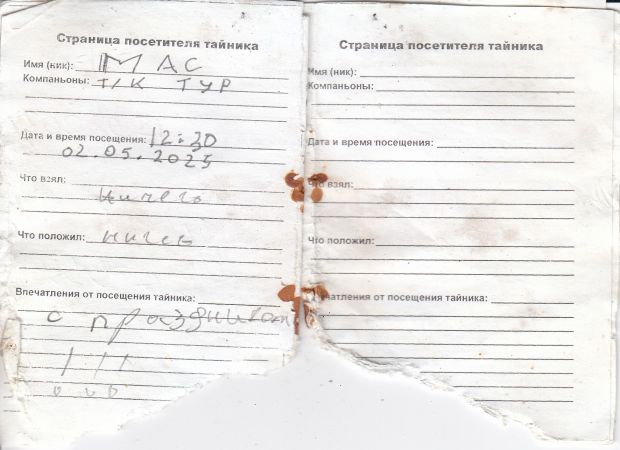 Страница посетителя тайника
Имя (ник): МАС
Компаньоны: Т/К ТУР
Дата и время посещения: 12:30
02.05.2025
Что взял:
ничего
Что положил: ничего
Впечатления от посещения тайника:
с праздником
!!!
Страница посетителя тайника
Имя (ник):
Компаньоны:
Дата и время посещения:
Что взял:
Что положил:
чатления от посещения тайника: